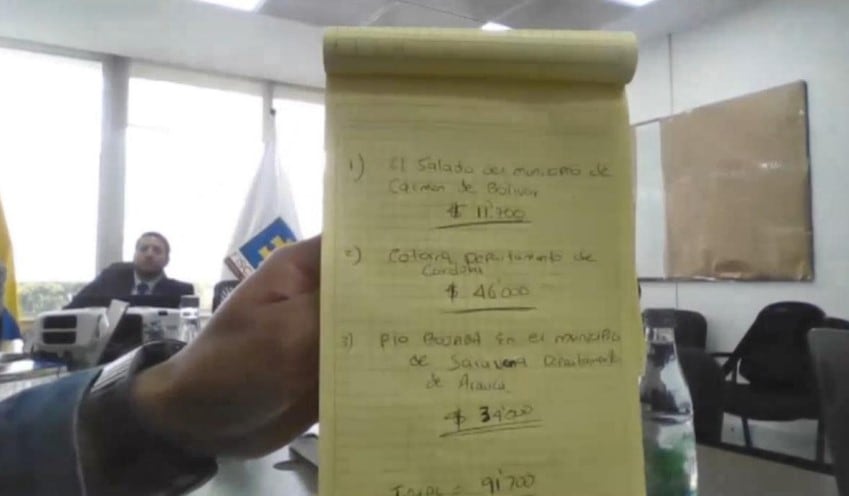 1) El Salado del municipio de
Carmen de Bolivar
$ 11'700
2) Cotorra departamento de
Cordoba
$ 46'000
3) Pto en el municipio
de Saravena Departamento
de Arauca
$ 34'000
Total = 91'700